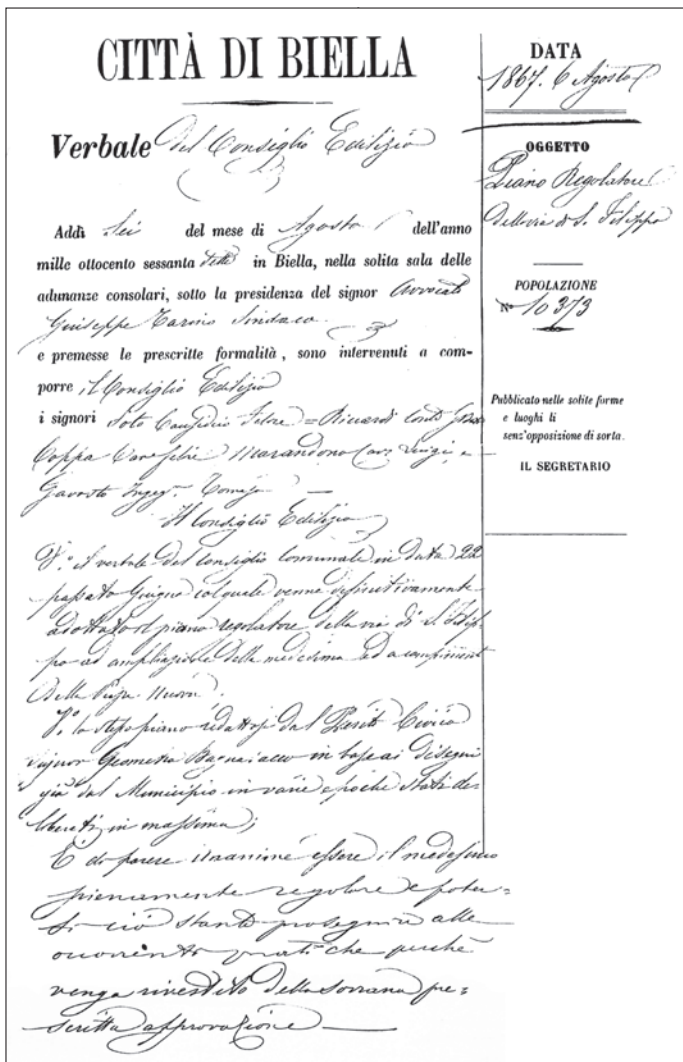 CITTÀ DI BIELLA
Verbale del Consiglio Edilizio
Addì Sei del mese di Agosto dell'anno
mille ottocento sessanta sette in Biella, nella solita sala delle
adunanze consolari, sotto la presidenza del signor Avvocato
Giuseppe Tarino Sindaco
e premesse le prescritte formalità, sono intervenuti a com-
porre il Consiglio Edilizio
i signori Soto Causidico = Riccardi Conte
Coppa Marandono Cav. Luigi e
Gavosto Ingeg.
Il Consiglio Edilizio
V.° il verbale del Consiglio Comunale in data 22
passato Giugno col quale venne definitivamente
adottato il piano regolatore della via di S. Filip-
po ad ampliazione della medesima ed a compiment
della Piazza Nuova.
V.° lo stesso piano redattosi dal Perito Civico
signor Geometra in base ai disegni
già dal Municipio in varie epoche stati de-
liberati in massima;
È di parere unanime essere il medesimo
pienamente regolare e poter-
si ciò stante proseguire alle
occorrenti pratiche perchè
venga rivestito della sovrana pre-
scritta approvazione
DATA
1867. 6 Agosto
OGGETTO
Piano Regolatore
della via di S. Filippo
POPOLAZIONE
N° 10373
Pubblicato nelle solite forme
e luoghi li
senz'opposizione di sorta.
IL SEGRETARIO